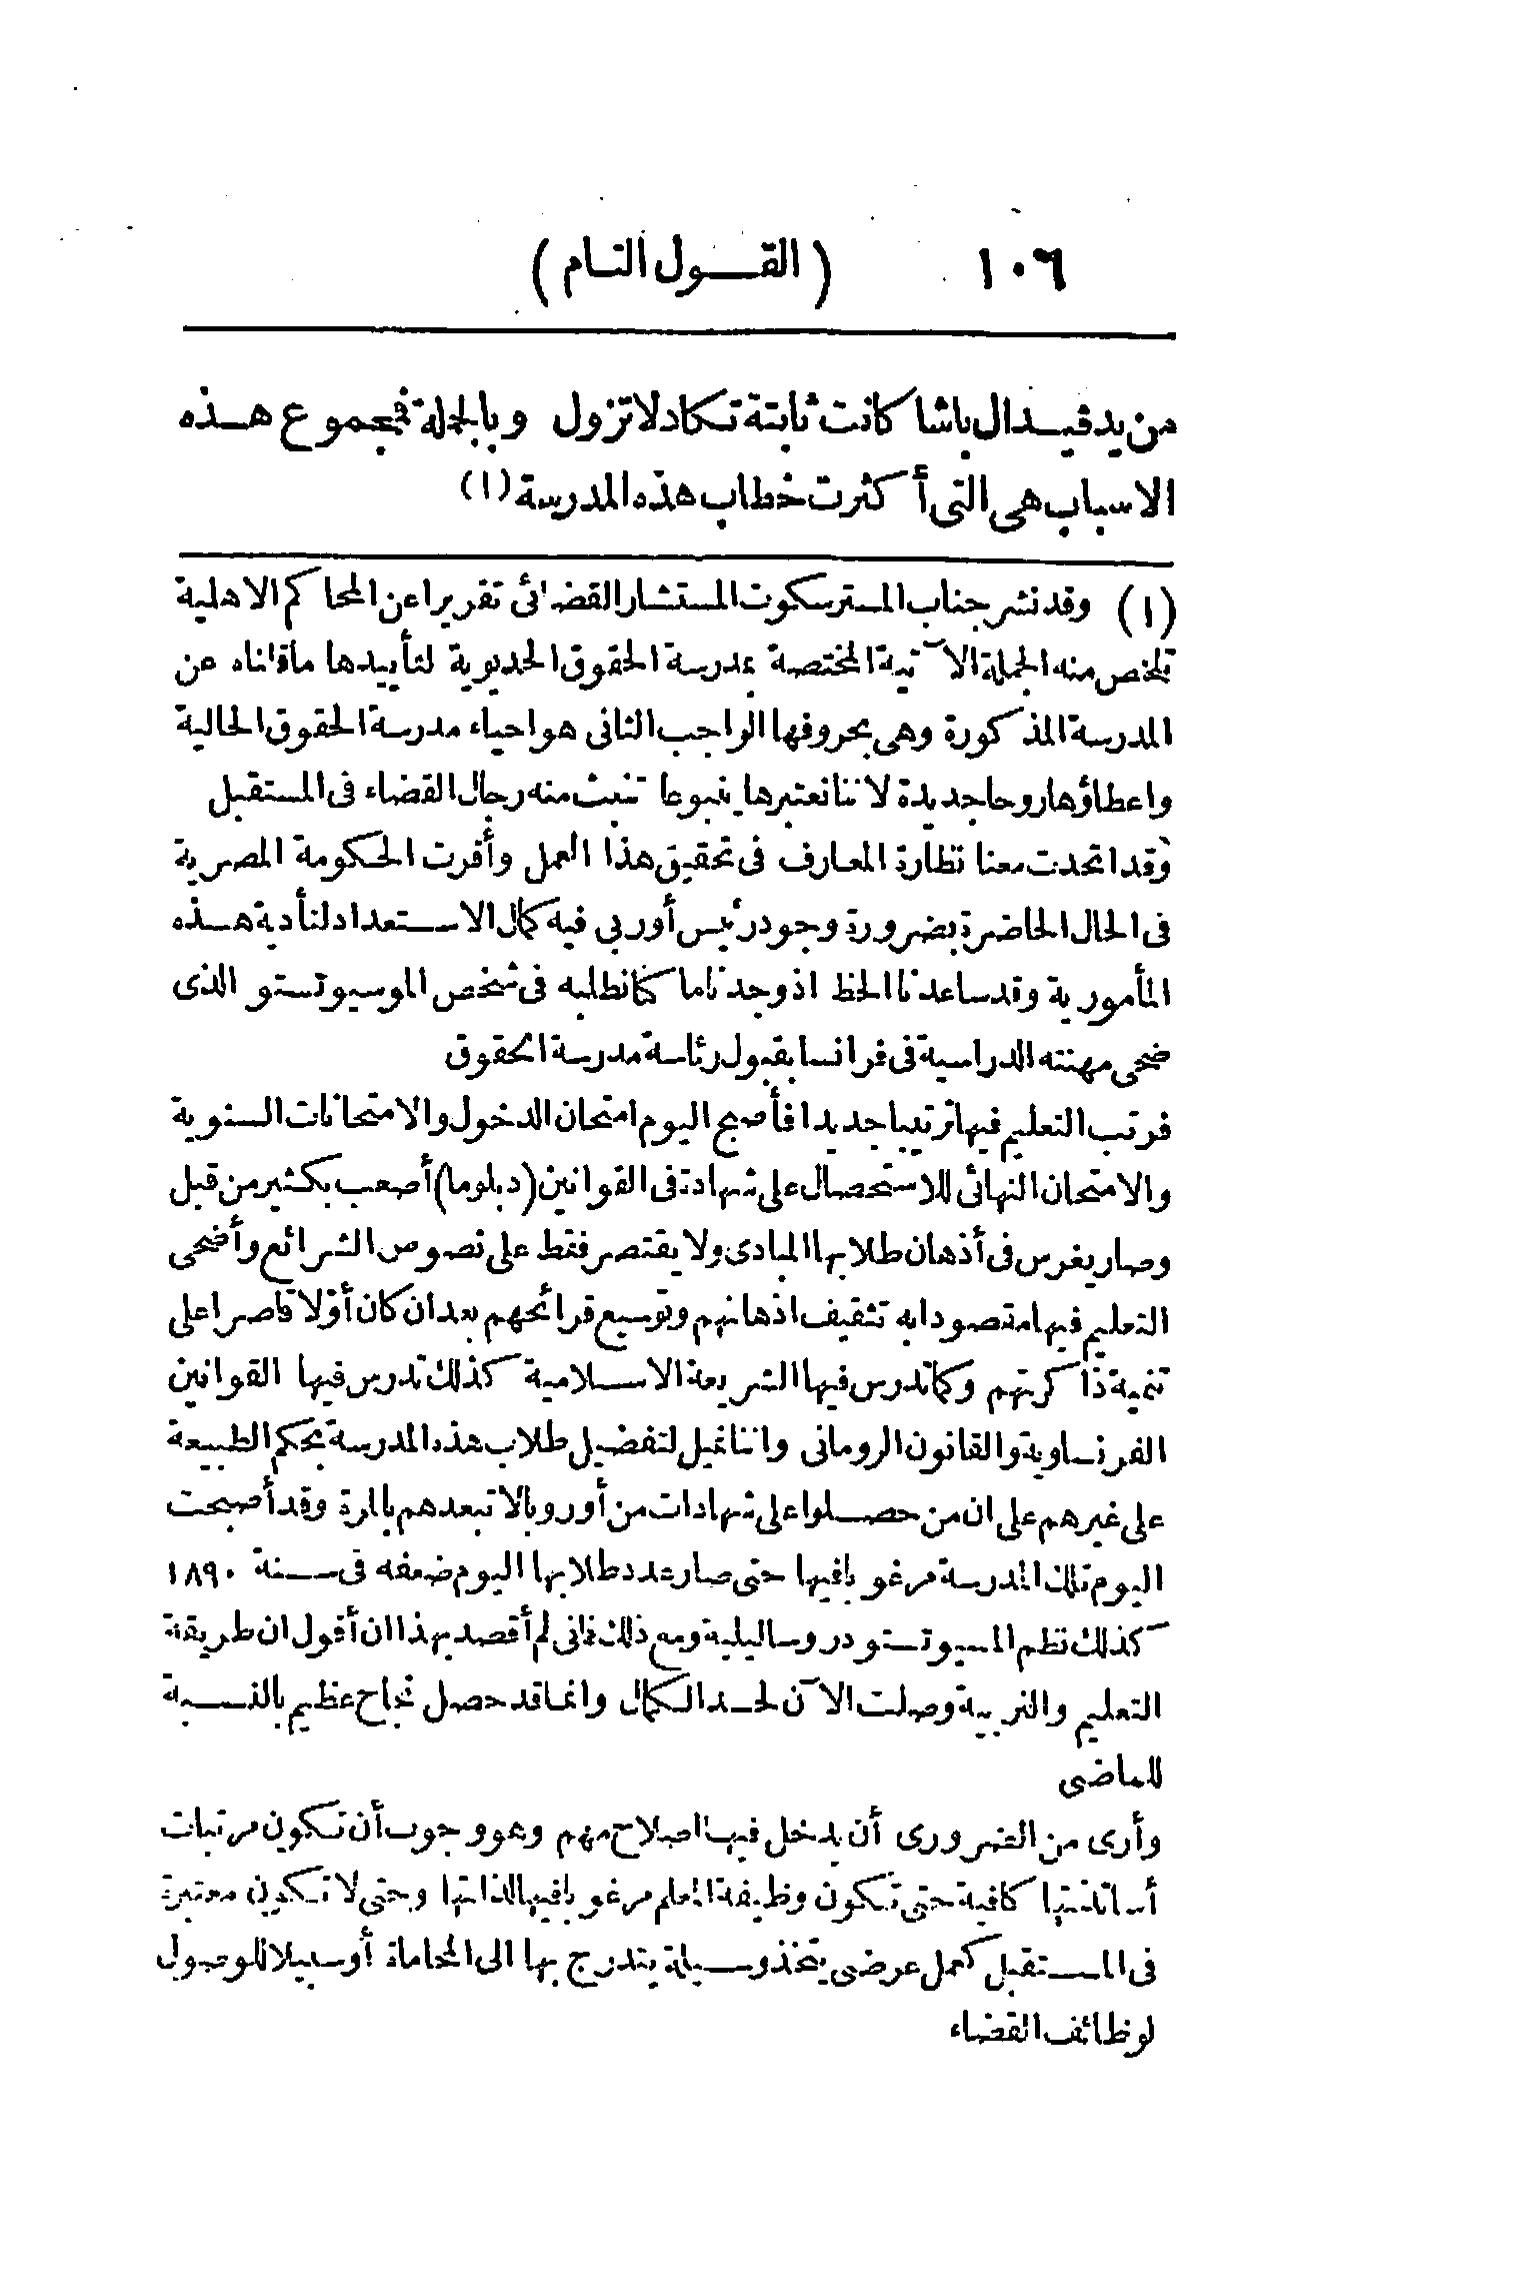 ١٠٦ (القول التام)
من يد ڤيدال باشا كانت ثابتة تكاد لا تزول وبالجملة فمجموع هذه
الاسباب هى التى أكثرت خطاب هذه المدرسة (١)
(١) وقد نشر جناب المستر سكوت المستشار القضائى تقريرا عن المحاكم الاهلية
نلخص منه الجملة الآتية المختصة بمدرسة الحقوق الخديوية لتأييدها ماقلناه عن
المدرسة المذكورة وهى بحروفها الواجب الثانى هو احياء مدرسة الحقوق الحالية
واعطاؤها روحا جديدة لاننا نعتبرها ينبوعا تنبث منه رجال القضاء فى المستقبل
وقد اتحدت معنا نظارة المعارف فى تحقيق هذا العمل وأقرت الحكومة المصرية
فى الحال الحاضرة بضرورة وجود رئيس أوربى فيه كمال الاستعداد لتأدية هذه
المأمورية وقد ساعدنا الحظ اذ وجدنا ما كنا نطلبه فى شخص الموسيو تستو الذى
ضحى مهنته الدراسية فى فرانسا بقبول رئاسة مدرسة الحقوق
فرتب التعليم فيها ترتيبا جديدا فأصبح اليوم امتحان الدخول والامتحانات السنوية
والامتحان النهائى للاستحصال على شهادة فى القوانين (دبلوما) أصعب بكثير من قبل
وصار يغرس فى أذهان طلابها المبادى ولا يقتصر فقط على نصوص الشرائع وأضحى
التعليم فيها مقصودا به تثقيف اذهانهم وتوسيع قرائحهم بعد ان كان أوّلا قاصرا على
تنمية ذاكرتهم وكما تدرس فيها الشريعة الاسلامية كذلك تدرس فيها القوانين
الفرنساوية والقانون الرومانى واننا نميل لتفضيل طلاب هذه المدرسة بحكم الطبيعة
على غيرهم على ان من حصلوا على شهادات من أوروبا لا تبعدهم بالمرة وقد أصبحت
اليوم تلك المدرسة مرغوبا فيها حتى صار عدد طلابها اليوم ضعفه فى سنة ١٨٩٠
كذلك نظم المسيو تستو دروسا ليلية ومع ذلك فانى لم أقصد بهذا ان أقول ان طريقة
التعليم والتربية وصلت الآن لحد الكمال وانما قد حصل نجاح عظيم بالنسبة
للماضى
وأرى من الضرورى أن يدخل فيها اصلاح مهم وهو وجوب أن تكون مرتبات
أساتذتها كافية حتى تكون وظيفة المعلم مرغوبا فيها لذاتها وحتى لا تكون معتبرة
فى المستقبل كعمل عرضى يتخذ وسيلة يتدرج بها الى المحاماة أو سبيلا للوصول
لوظائف القضاء